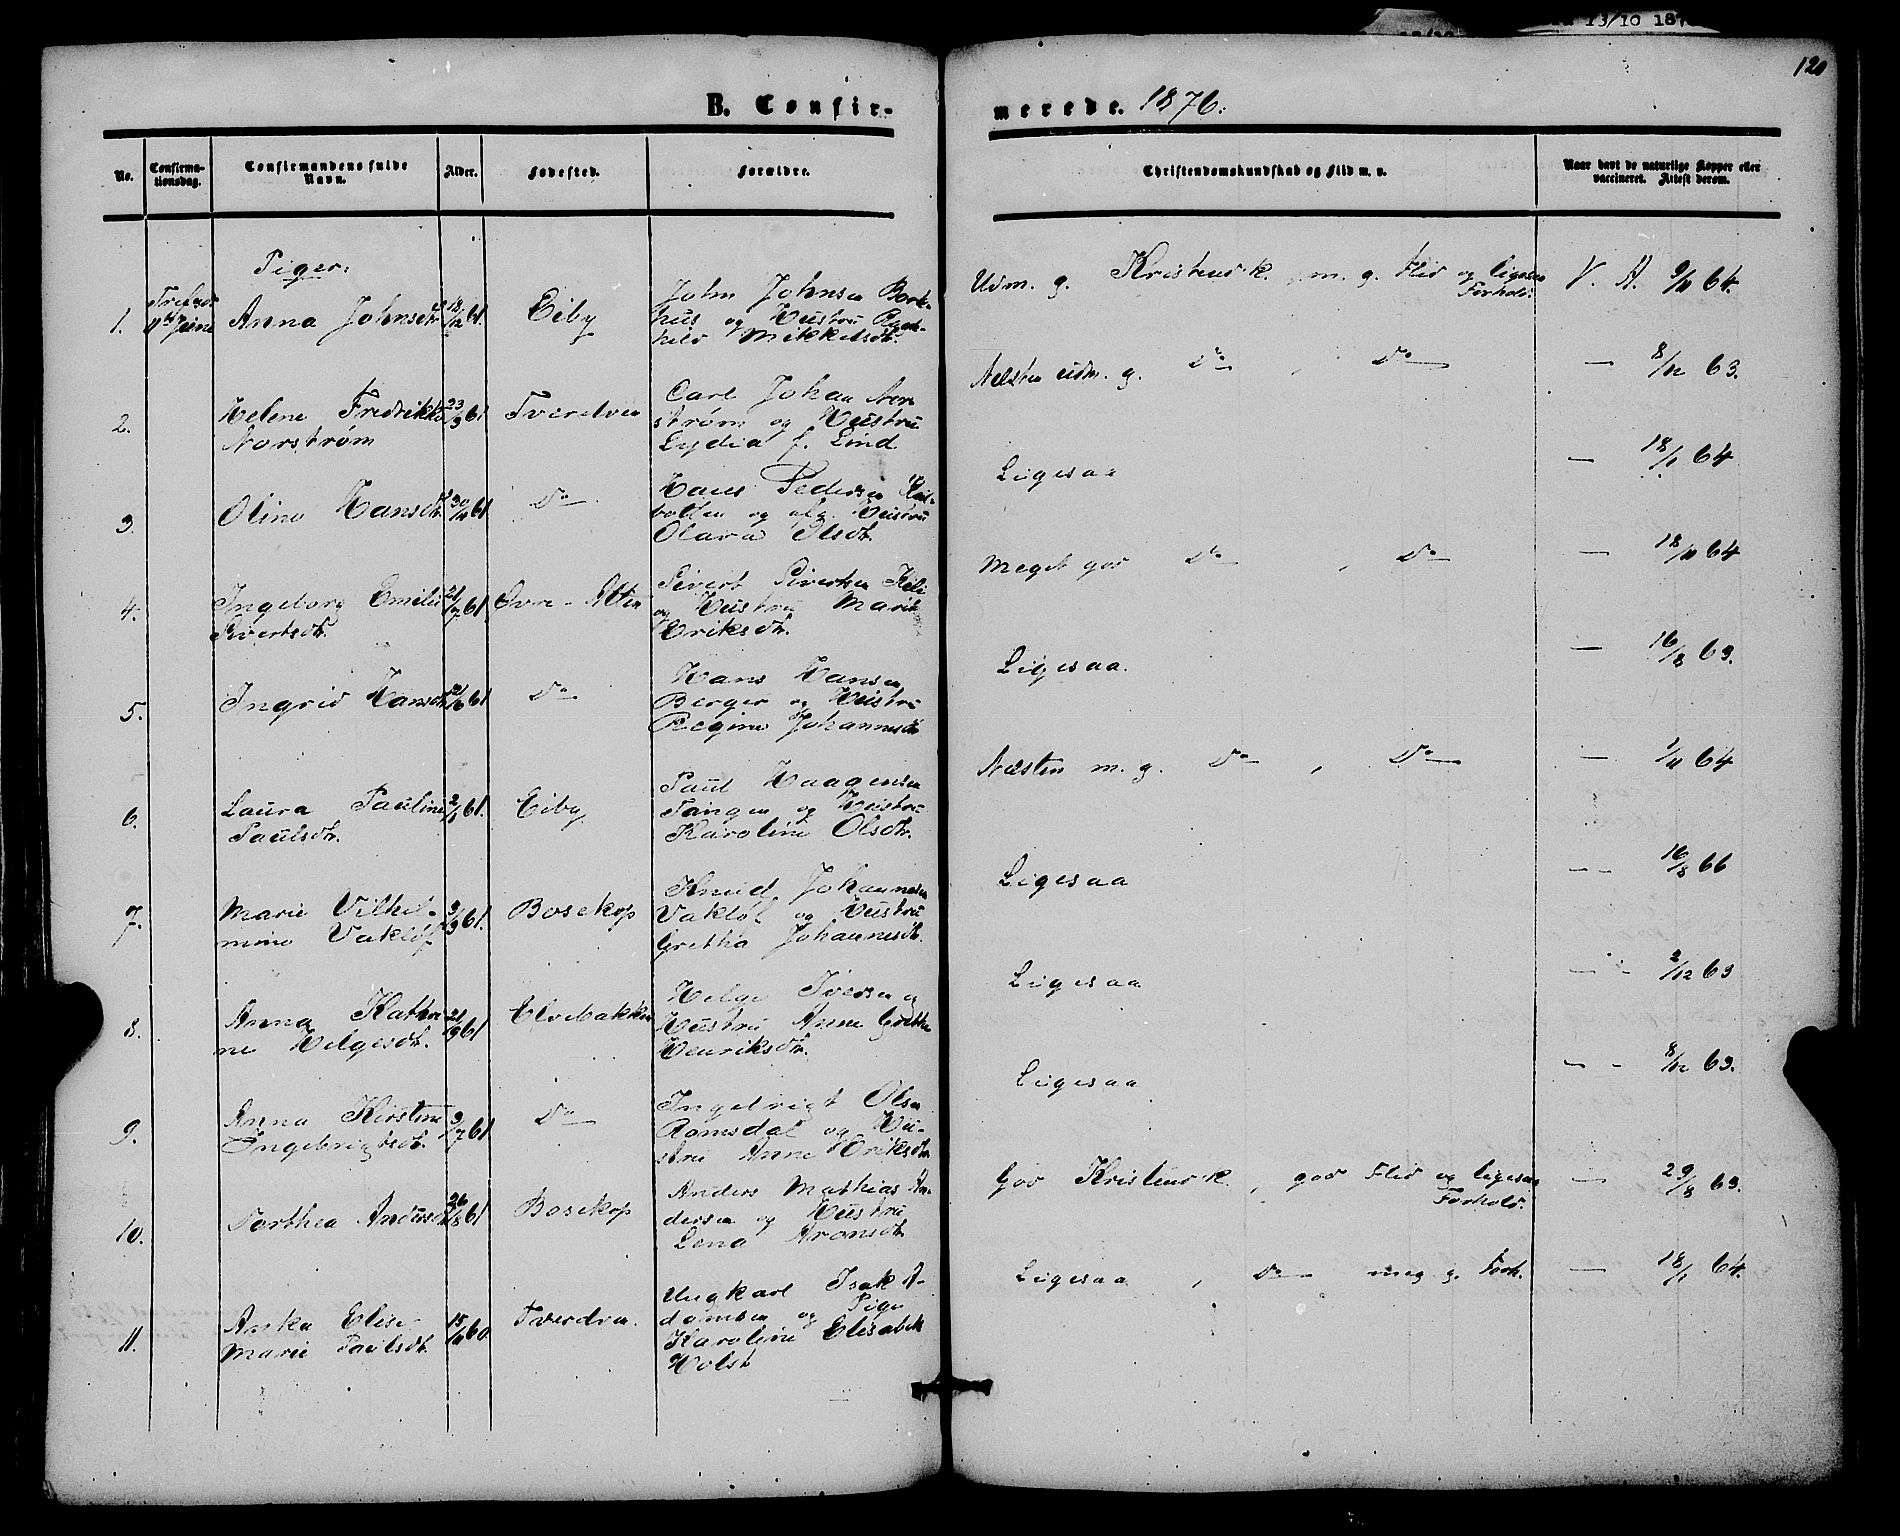 13/10 187
120
B. Confirmerede. 1876.
No.
Confirma-
tionsdag.
Confirmandens fulde
Navn.
Alder.
Fødested.
Forældre.
Christendomskundskab og Flid m. v.
Naar havt de naturlige Kopper eller
vaccineret. Attest derom.
Piger:
1. 11te Juni Anna Johnsdtr 18/12 61. Eiby
John Johnsen Bork-
hus og Hustru
Mikkelsdtr.
Udm. g. Kristendk., m. g. Flid og ligesaa
Forhold.
V. A. 9/11 64.
2. Helene Fredrikke 23/3 61 Tverelven
Norstrøm
Carl Johan Nor-
strøm og Hustru
Lydia f. Lind
Næsten udm. g. Do , Do
— 8/12 63.
3. Oline Hansdtr. 30/11 61 Do
Hans Pedersen
og afg. Hustru
Olava Olsdtr.
Ligesaa
— 18/1 64
4. Ingeborg Emilie 21/7 61 Øvre-Alten
Sivertsdtr.
Sivert Sivertsen
og Hustru Marit
Eriksdtr.
Meget god Do , Do
— 18/11 64
5. Ingrid Hansdtr 61 Do
Hans Hansen
Berger og Hustru
Regine Johannesdtr
Ligesaa.
— 16/8 63.
6. Laura Pauline 2/1 61. Eiby
Paulsdtr.
Paul Haagensen
Tangen og Hustru
Karoline Olsdtr.
Næsten m. g. Do , Do
— 1/11 64
7. Marie Vilhel- 3/3 61. Bosekop
mine Vakløf
Knud Johannesen
Vakløf og Hustru
Grethe Johannesdtr.
Ligesaa
— 16/8 66
8. Anna Kathri- 21/9 61 Elvebakken
ne Helgesdtr.
Helge Iversen og
Hustru Anne Grethe
Henriksdtr.
Ligesaa
— 2/12 63
9. Anna Kirstine 3/7 61 Do
Ingebrigtsdtr.
Ingebrigt Olsen
Romsdal og Hu-
stru Anne Eriksdtr
Ligesaa
— 8/12 63.
10. Dorthea Andersdtr 26/8 61 Bosekop
Anders Mathias An-
dersen og Hustru
Lena Aronsdtr
God Kristendk., god Flid og ligesaa
Forhold.
— 29/8 63.
11. Anka Elise 15/11 60 Tverelven.
Marie Paulsdtr.
Ungkarl Isak A-
damsen og Pige
Karoline Elisabeth
Holst
Ligesaa , Do meg. g. Forh.
— 18/1 64.